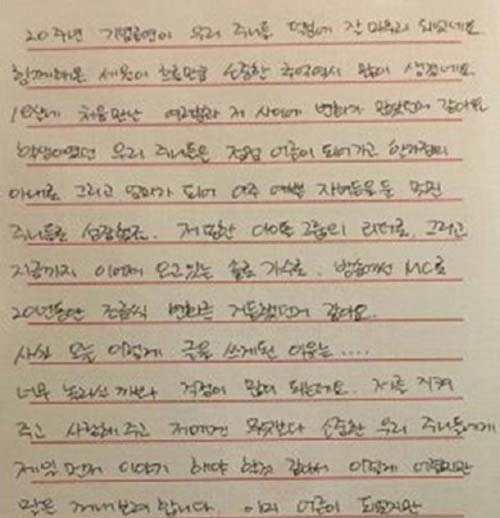 20주년 기념공연이 우리 주니들 덕분에 잘 마무리 되었네요.
함께해온 세월이 흐른만큼 소중한 추억역시 많이 생겼네요.
18살에 처음 만난 여러분과 저 사이에 변화가 많았던거 같아요
학생이였던 우리 주니들은 점점 어른이 되어가고 한가정의
아내로 그리고 엄마가 되어 아주 예쁜 자녀들을 둔 멋진
주니들로 성장했죠. 저 또한 아이돌 그룹의 리더로, 그리고
지금까지 이어져 오고있는 솔로 가수로, 방송에선 MC로
20년동안 조금씩 변화를 거듭했던거 같아요.
사실 오늘 이렇게 글을 쓰게된 이유는....
너무 놀라실까봐 걱정이 많이 되는데요. 저를 지켜
주고 사랑해 주고 저에겐 무엇보다 소중한 우리 주니들에게
제일 먼저 이야기 해야 할것 같아서 이렇게 어렵지만
말을 꺼내보려 합니다. 이미 어른이 되었지만